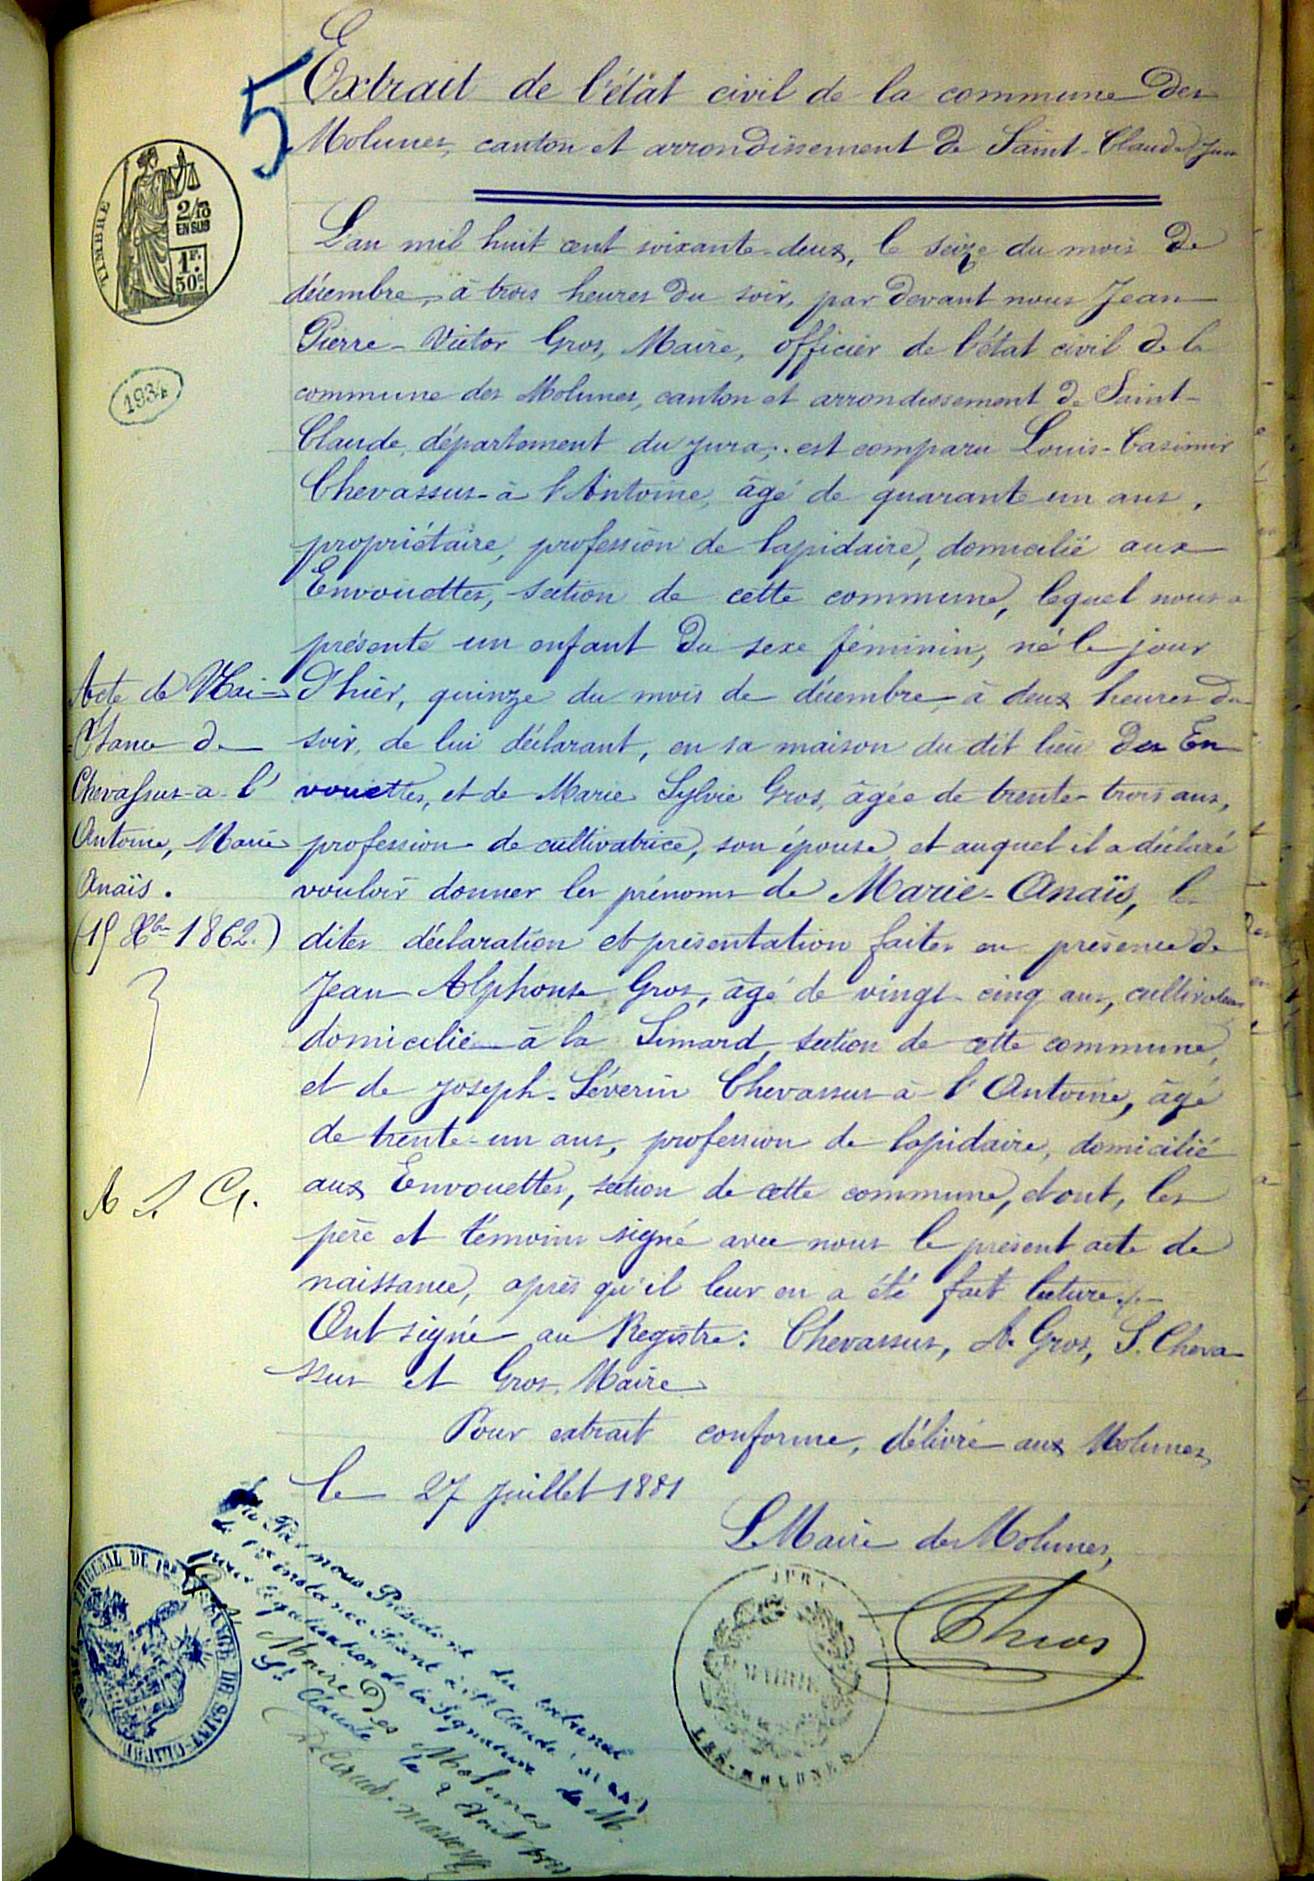 5
Extrait de l'état civil de la commune des
Molunes, canton et arrondissement de Saint-Claude, Jura
TIMBRE
2/10
EN SUS
1F.
50c
1934
L'an mil huit cent soixante-deux, le seize du mois de
décembre, à trois heures du soir, par devant nous Jean
Pierre-Victor Gros, Maire, officier de l'état civil de la
commune des Molunes, canton et arrondissement de Saint-
Claude, département du Jura, est comparu Louis-Casimir
Chevassus-à l'Antoine, âgé de quarante un ans,
propriétaire, profession de lapidaire, domicilié aux
Envouettes, section de cette commune, lequel nous a
présenté un enfant du sexe féminin, né le jour
d'hier, quinze du mois de décembre, à deux heures du
soir, de lui déclarant, en sa maison du dit lieu des En
vouettes, et de Marie Sylvie Gros, âgée de trente-trois ans,
profession de cultivatrice, son épouse, et auquel il a déclaré
vouloir donner les prénoms de Marie-Anaïs, les
dites déclaration et présentation faites en présence de
Jean Alphonse Gros, âgé de vingt-cinq ans, cultivateur
domicilié à la Simard, section de cette commune,
et de Joseph-Séverin Chevassus-à-l'Antoine, âgé
de trente-un ans, profession de lapidaire, domicilié
aux Envouettes, section de cette commune, et ont, les
père et témoins signé avec nous le présent acte de
naissance, après qu'il leur en a été fait lecture.
Ont signé au Registre: Chevassus, A. Gros, S. Cheva
ssus et Gros, Maire
Pour extrait conforme, délivré aux Molunes,
le 27 juillet 1881
Le Maire des Molunes,
Acte de Nai-
ssance de
Chevassus-a-l'
Antoine, Marie
Anaïs.
(15 Xbre 1862.)
JURA
MAIRIE
LES-MOLUNES
TRIBUNAL DE 1ère INSTANCE DE SAINT-CLAUDE
Vu Par nous Président du tribunal
de 1re instance séant à St Claude (Jura)
pour légalisation de la signature de M.
Maire Des Molunes
St Claude le 2 Août